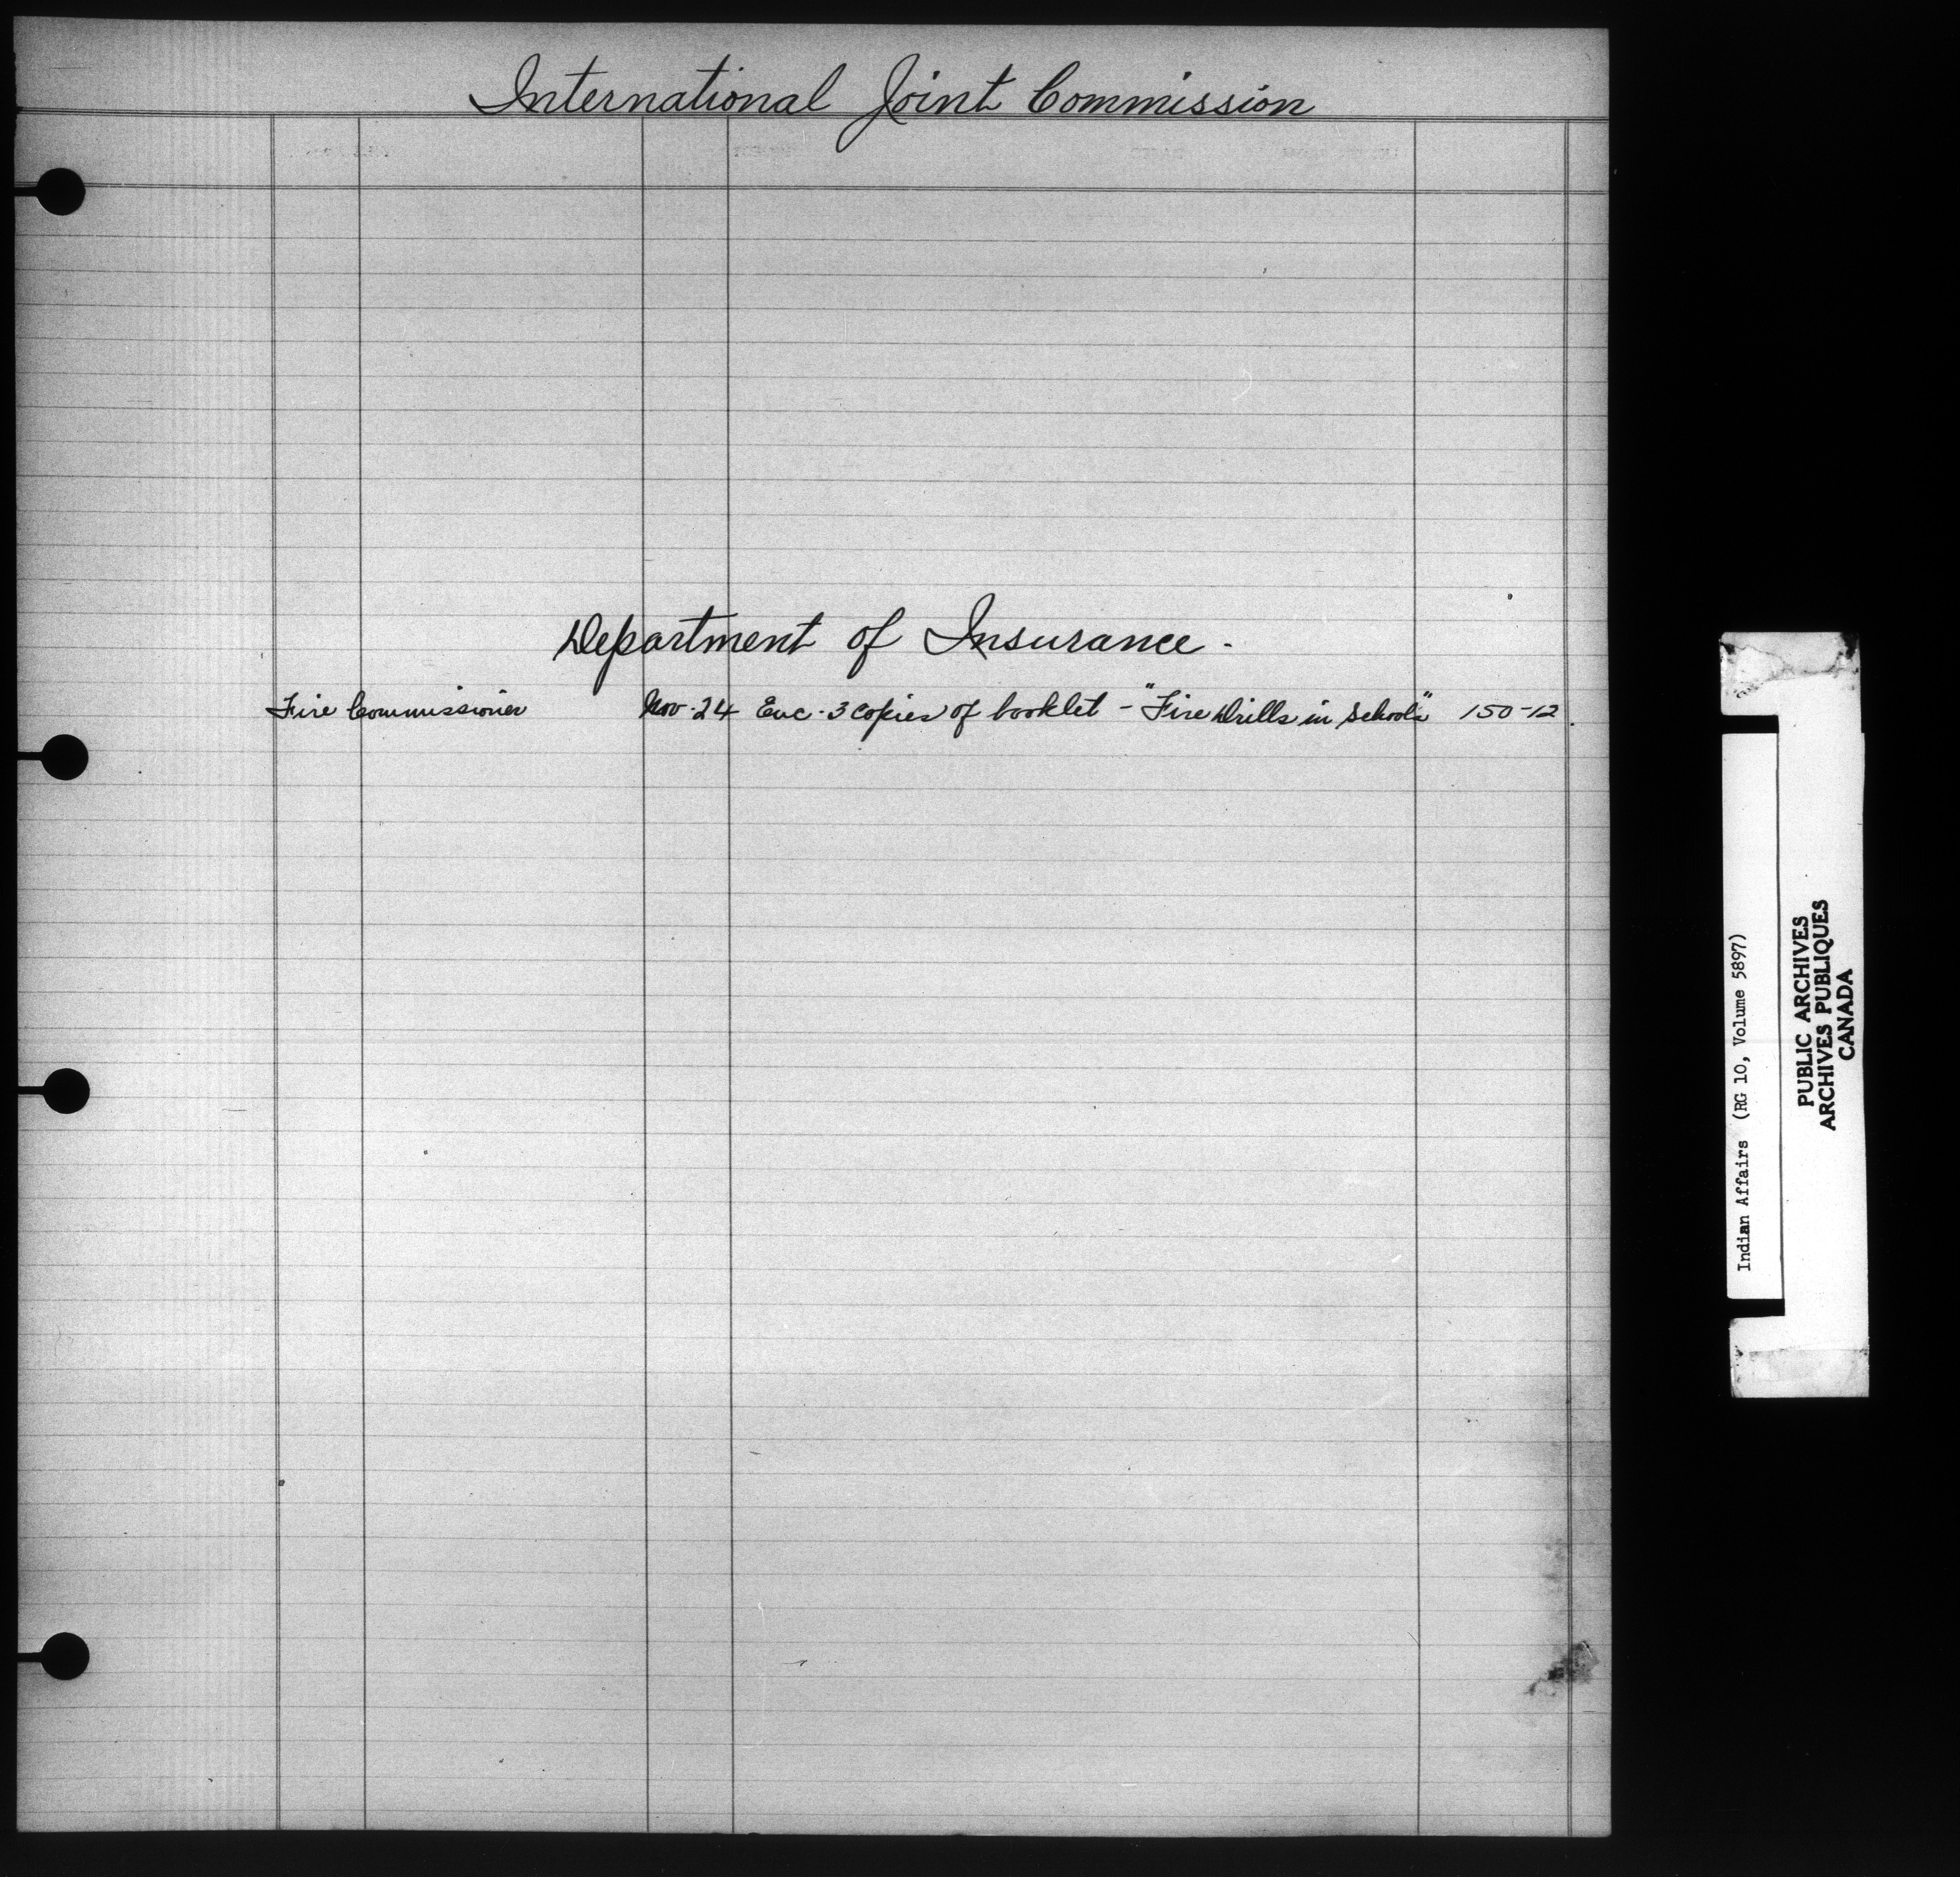 International Joint Commission
Department of Insurance -
Fire Commissioner Nov. 24 Enc. 3 copies of booklet - "Fire Drills in Schools" 150-12.
Indian Affairs (RG 10, Volume 5897)
PUBLIC ARCHIVES
ARCHIVES PUBLIQUES
CANADA